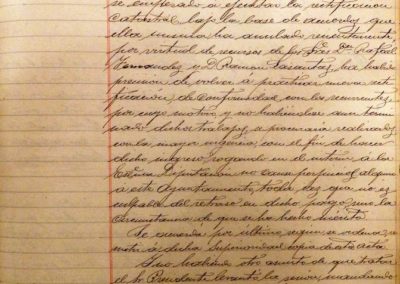 se empezado a ejecutar la rectificación
Catastral bajo la base de acuerdos que
ella misma ha anulado recientemente
por virtud de recursos de los Sres Dn Rafael
Fernandez y D. Ramon Sarientos, ha habido
precision de volver á practicar nueva rec-
tificación, de conformidad con los recurrentes
por cuyo motivo y no habiendose aun termi-
nado dichos trabajos, se procurara realizarlos
con la mayor urgencia con el fin de hacer
dicho ingreso, rogando en el interin á la
Excma Diputación no cause perjuicios alguno
á este Ayuntamiento, toda vez que no es
culpable del retraso en dicho pago, sino la
Circunstancia de que se ha hecho mérito.
Se acuerda por último segun se ordena, re-
mitir á dicha Superioridad copia de esta acta
Y no habiendo otro asunto de que tratar
el Sr Presidente levantó la sesión, mandando